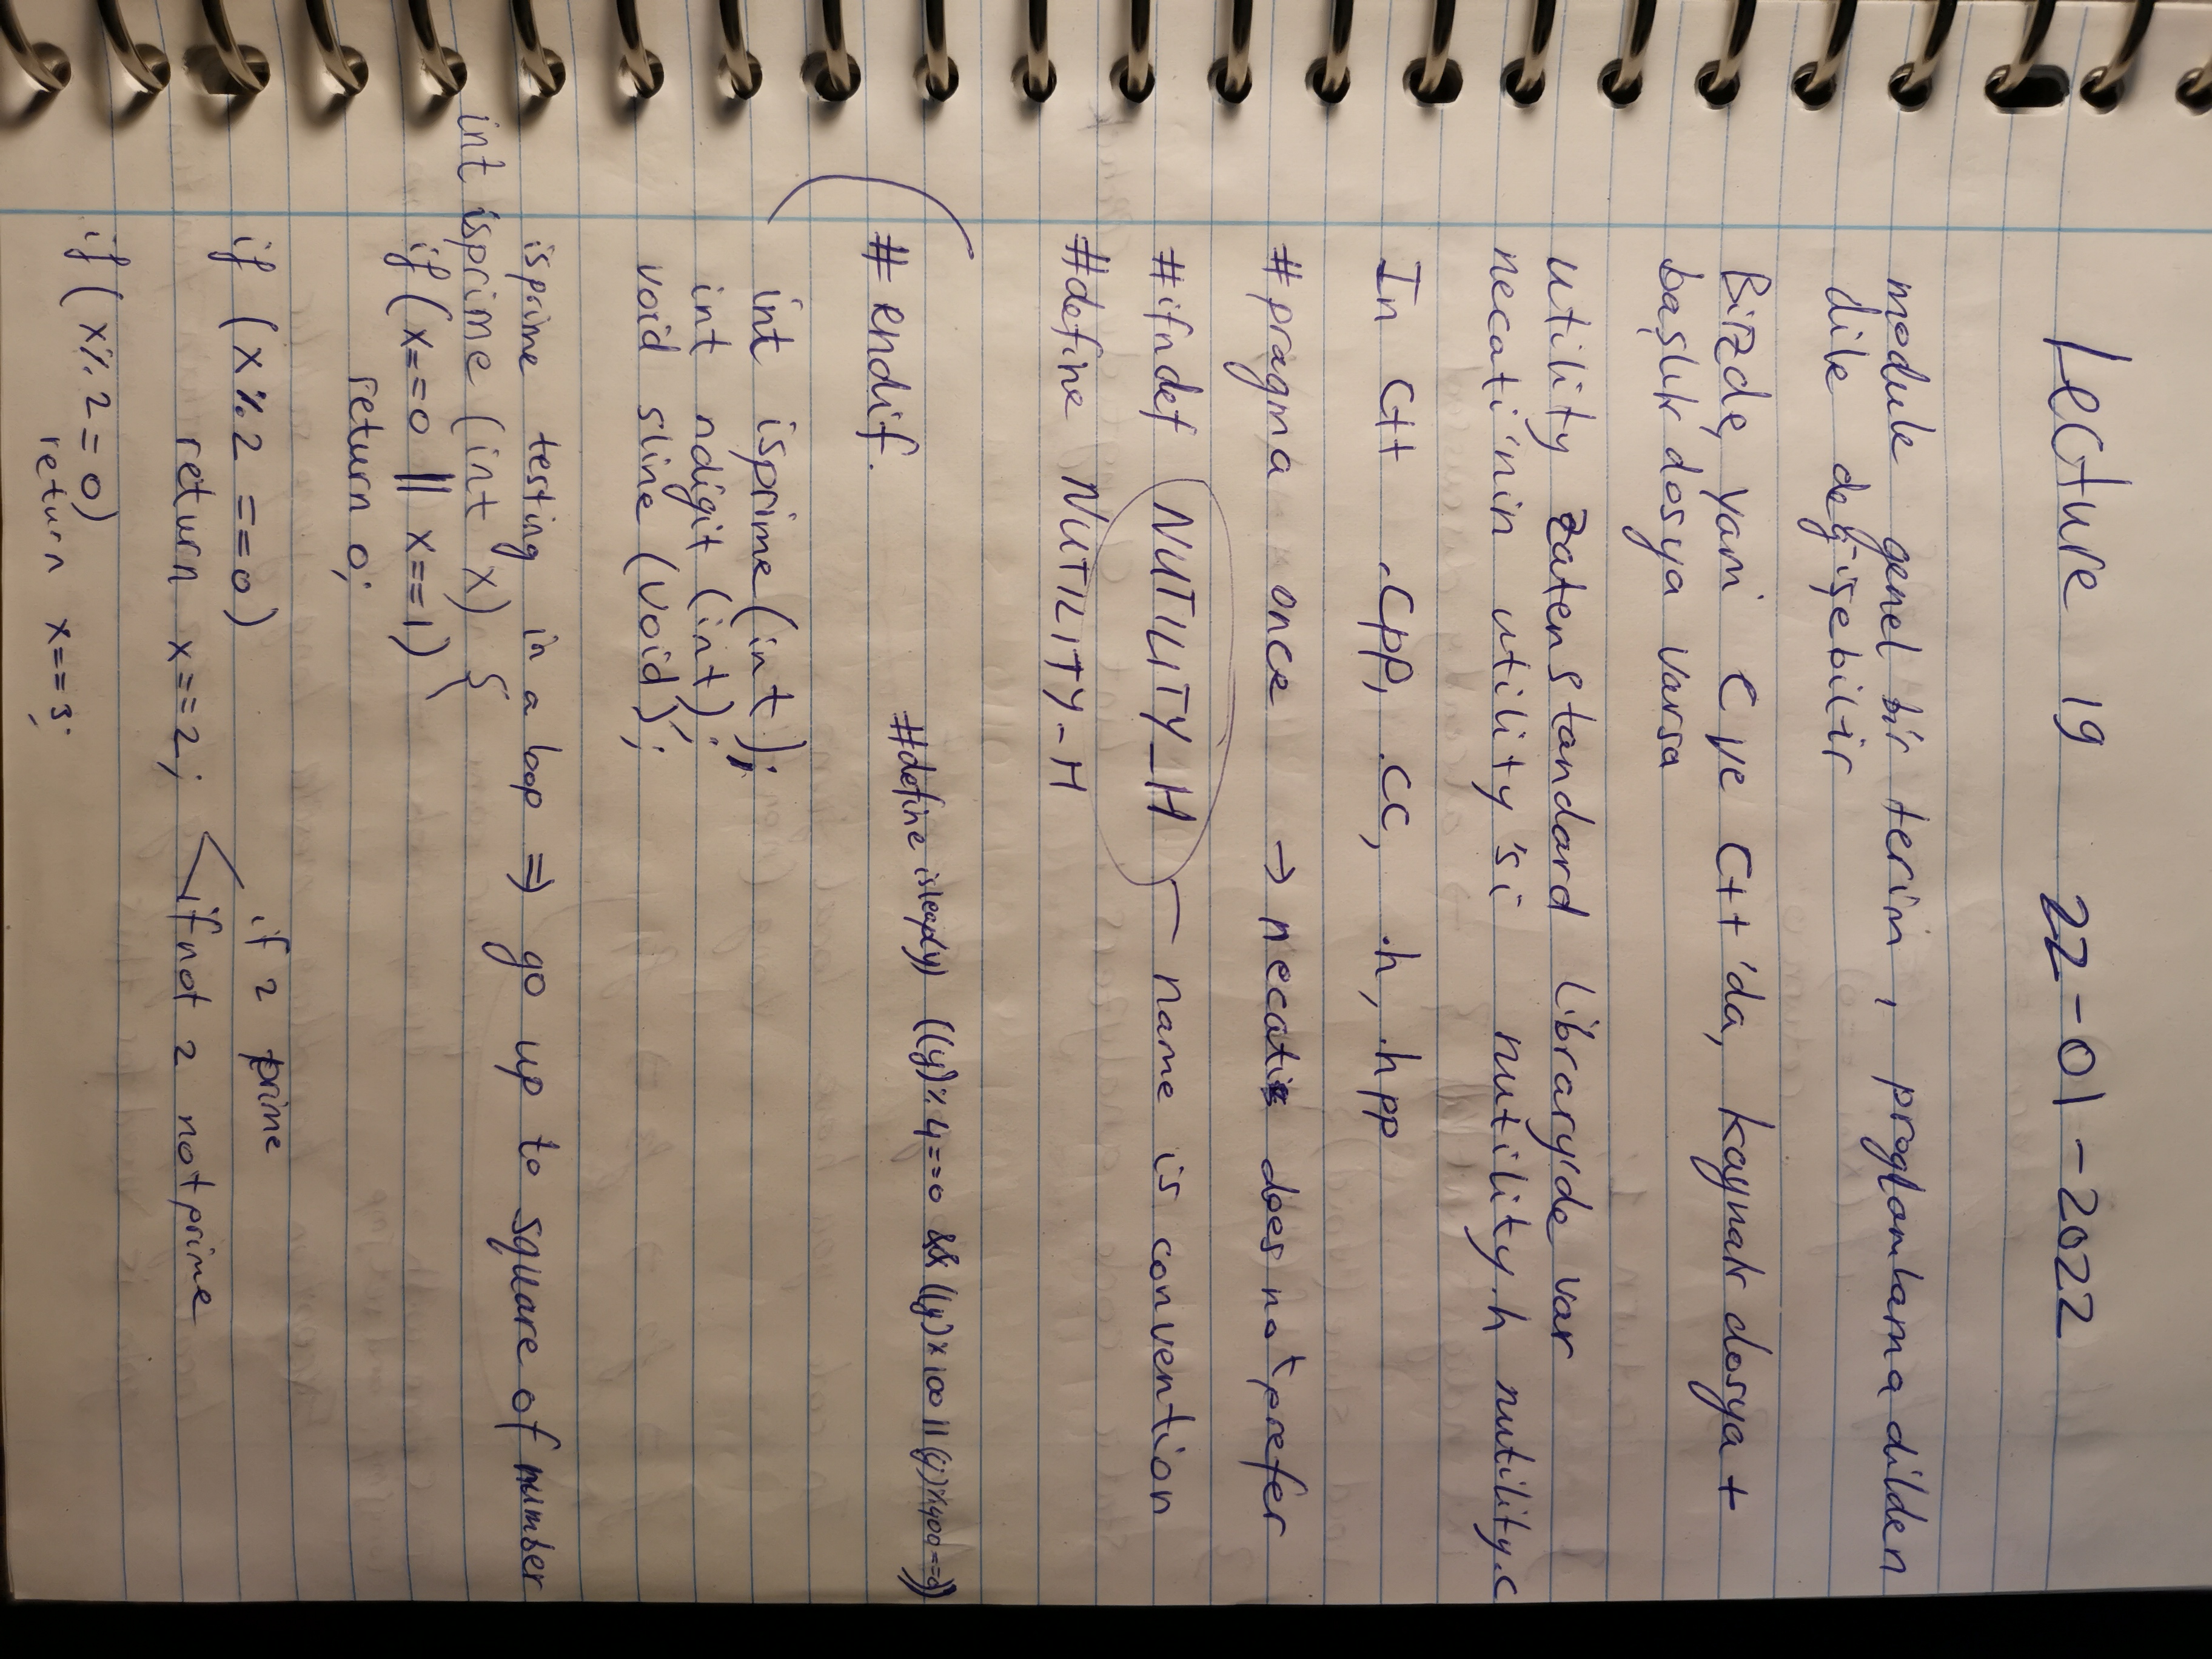 Lecture 19 22-01-2022
module genel bir terim, programlama dilden
dile değişebilir
Bizde, yani C ve C++'da, kaynak dosya +
başlık dosya varsa
utility zaten standard library'de var
necati'nin utility'si nutility.h nutility.c
In C++ .cpp, .cc, .h, .hpp
#pragma once → necati does not prefer
#ifndef NUTILITY_H — name is convention
#define NUTILITY_H
#define isleap(y) ((y)%4==0 && ((y)%100 || (y)%400==0))
#endif.
int isprime(int);
int ndigit(int);
void sline(void);
isprime testing in a loop ⇒ go up to square of number
int isprime (int x) {
if (x==0 || x==1)
return 0;
if (x%2 ==0)
if 2 prime
return x==2; < if not 2 not prime
if (x%2=0)
return x==3;